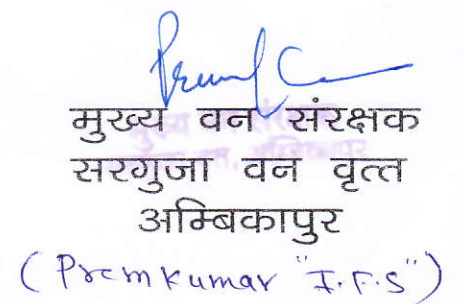 मुख्य वन संरक्षक
सरगुजा वन वृत्त
अम्बिकापुर
(Prem Kumar "I.F.S")